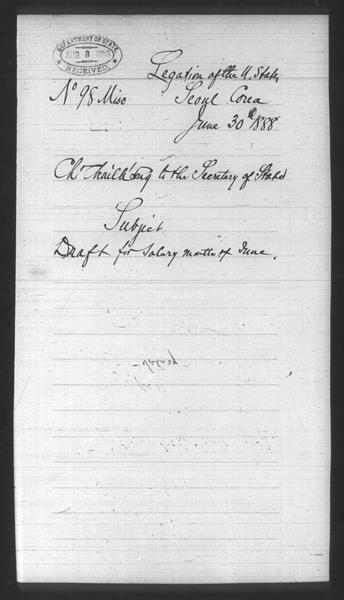 DEPARTMENT OF STATE
AUG 8 1888
RECEIVED
Legation of the U. States
No 98 Misc
Seoul Corea
June 30th 1888
Chs Chaillé Long to the Secretary of State
Subject
Draft for Salary month of June.